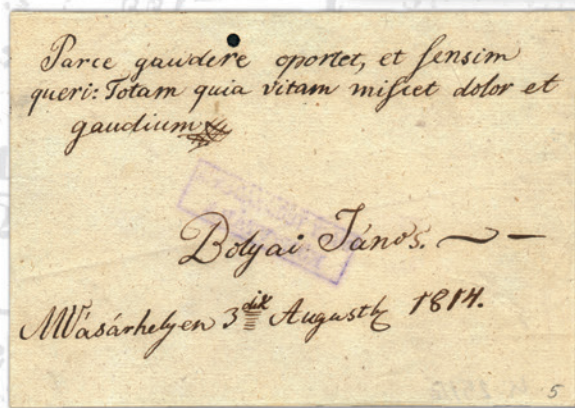 Parce gaudere oportet, et sensim
queri: Totam quia vitam miscet dolor et
gaudium
Bolyai János.
MVásárhelyen 3dik Augustb 1814.
5